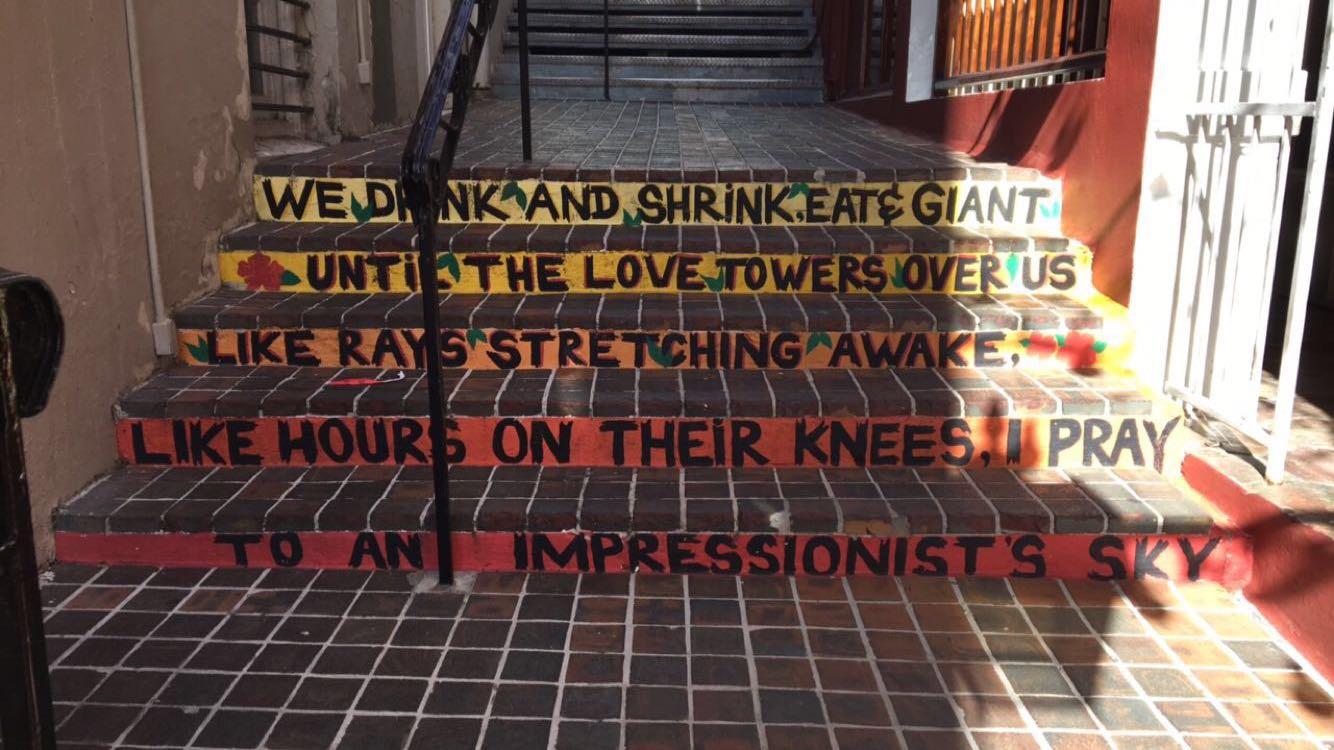 WE DRINK AND SHRINK, EAT & GIANT
UNTIL THE LOVE TOWERS OVER US
LIKE RAYS STRETCHING AWAKE,
LIKE HOURS ON THEIR KNEES, I PRAY
TO AN IMPRESSIONIST'S SKY